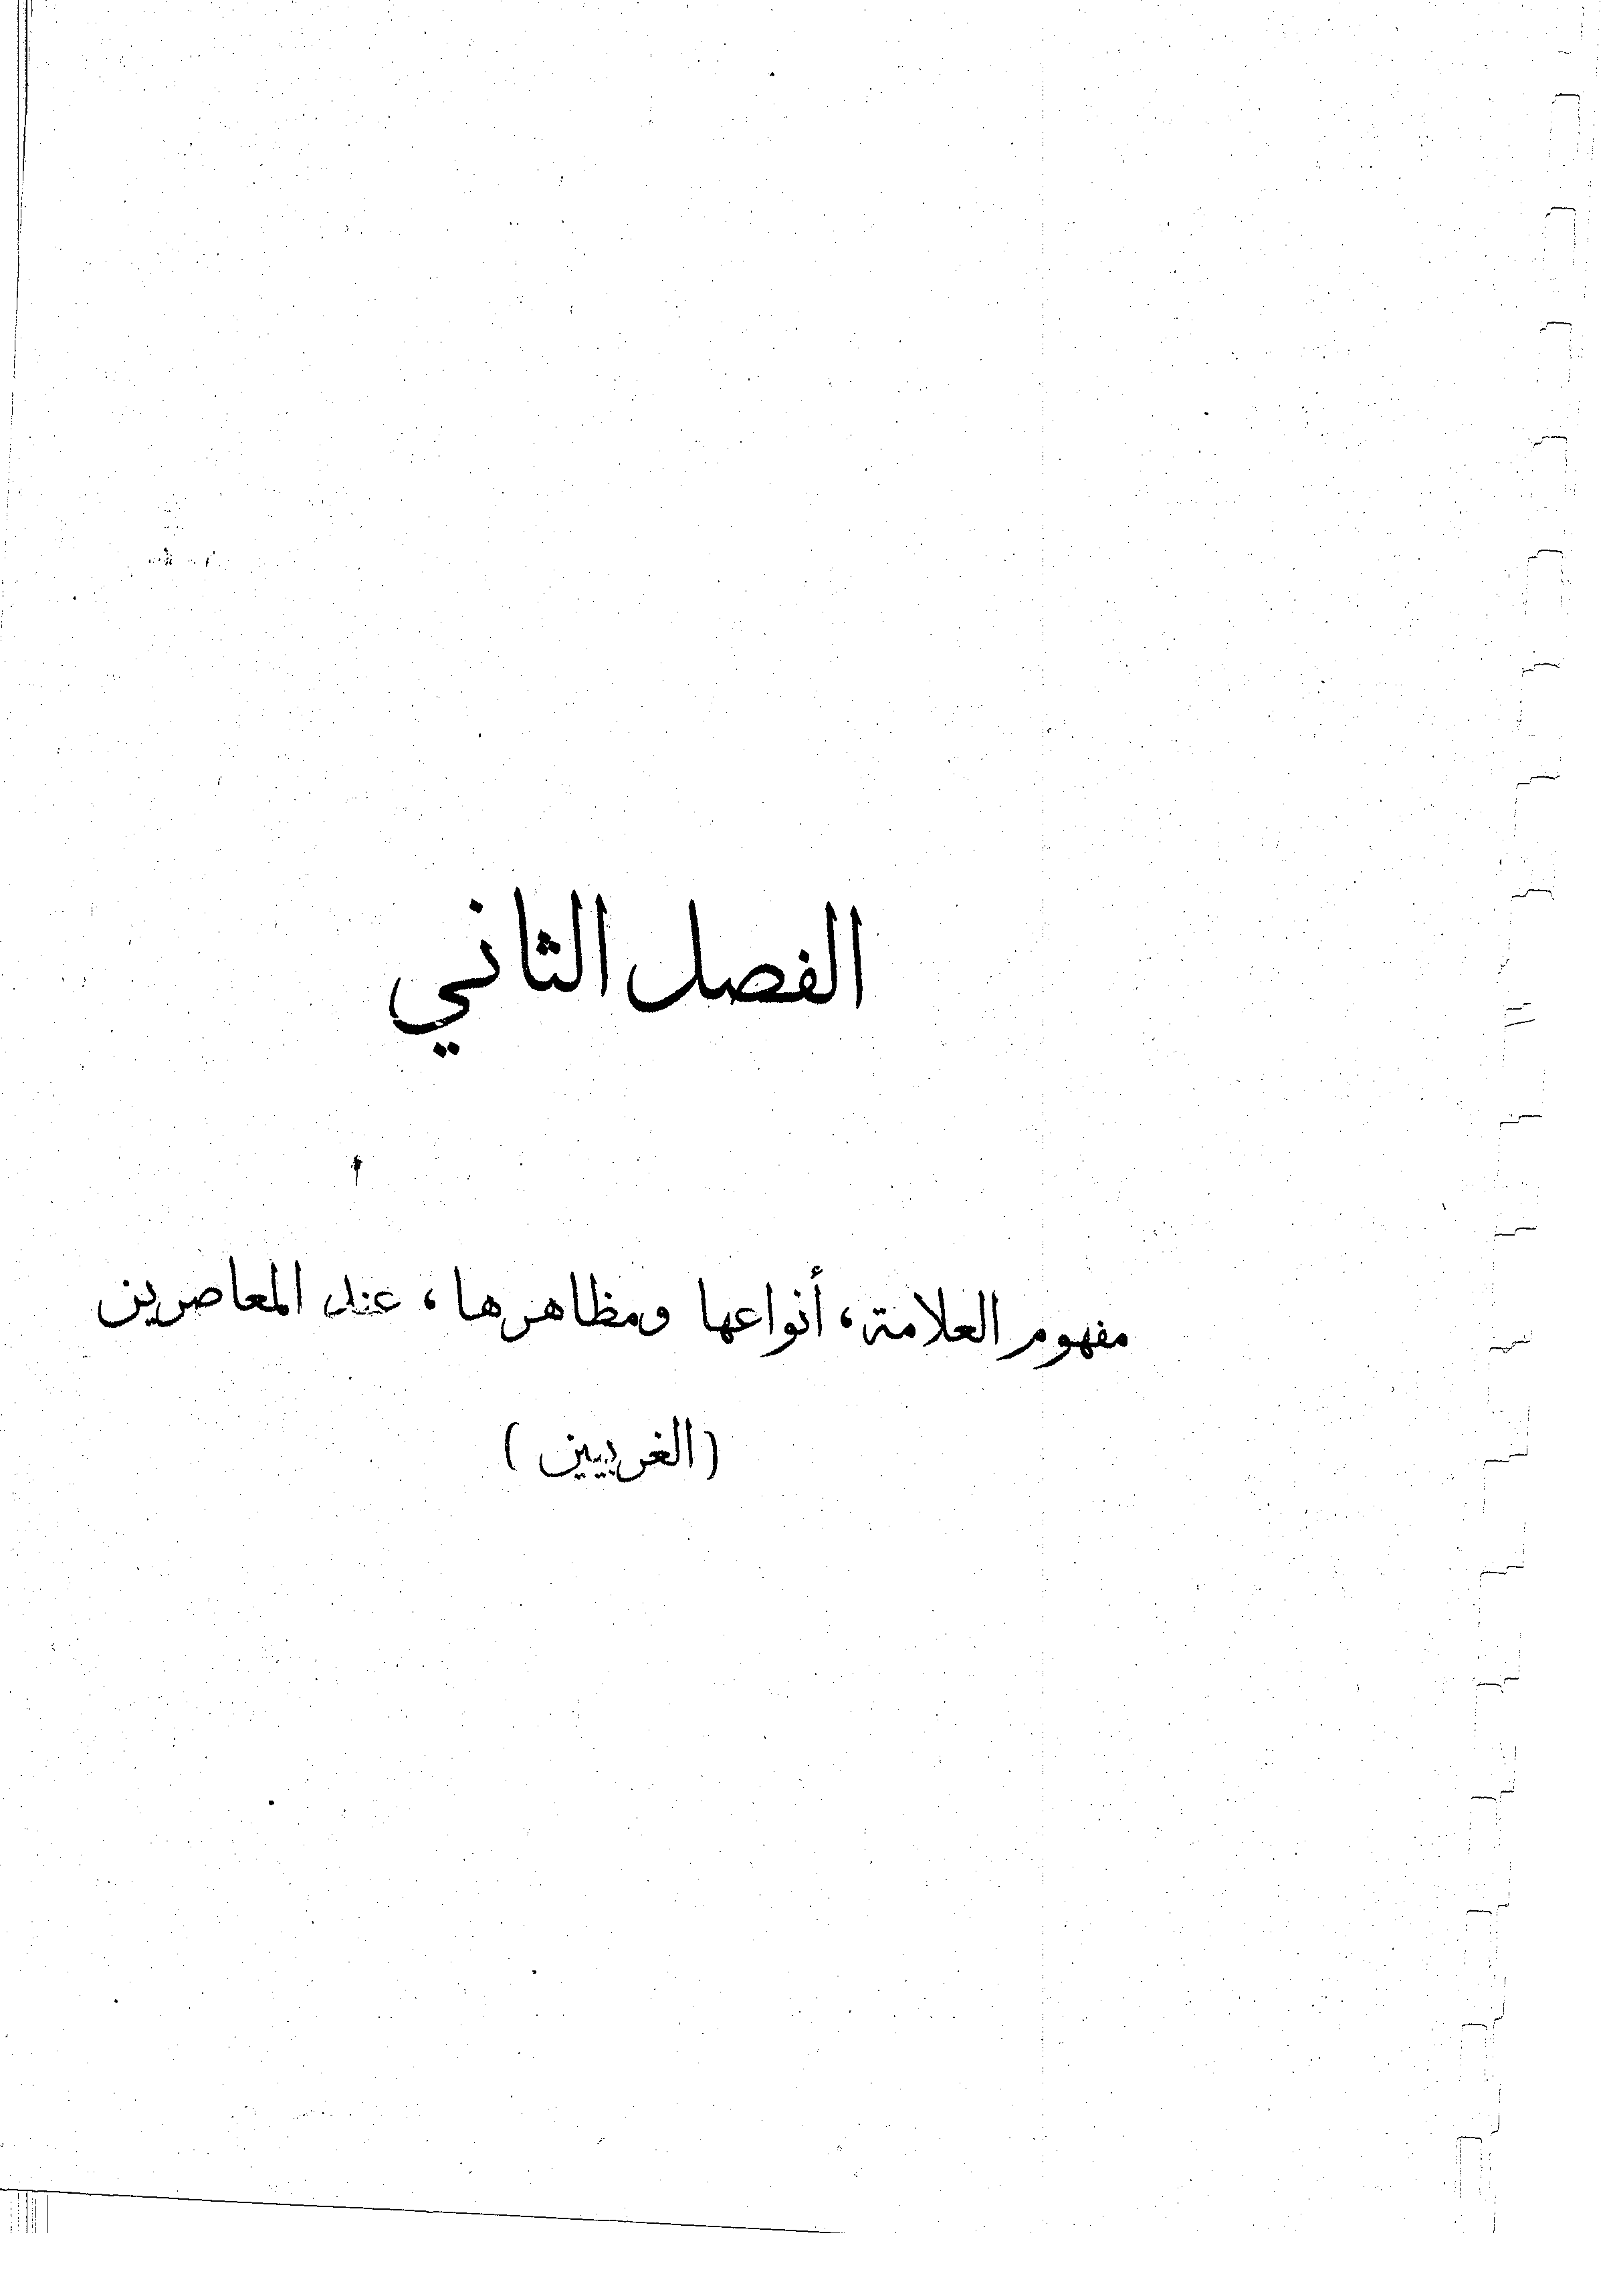 الفصل الثاني
مفهوم العلامة، أنواعها ومظاهرها، عند المعاصرين
(الغربيين)